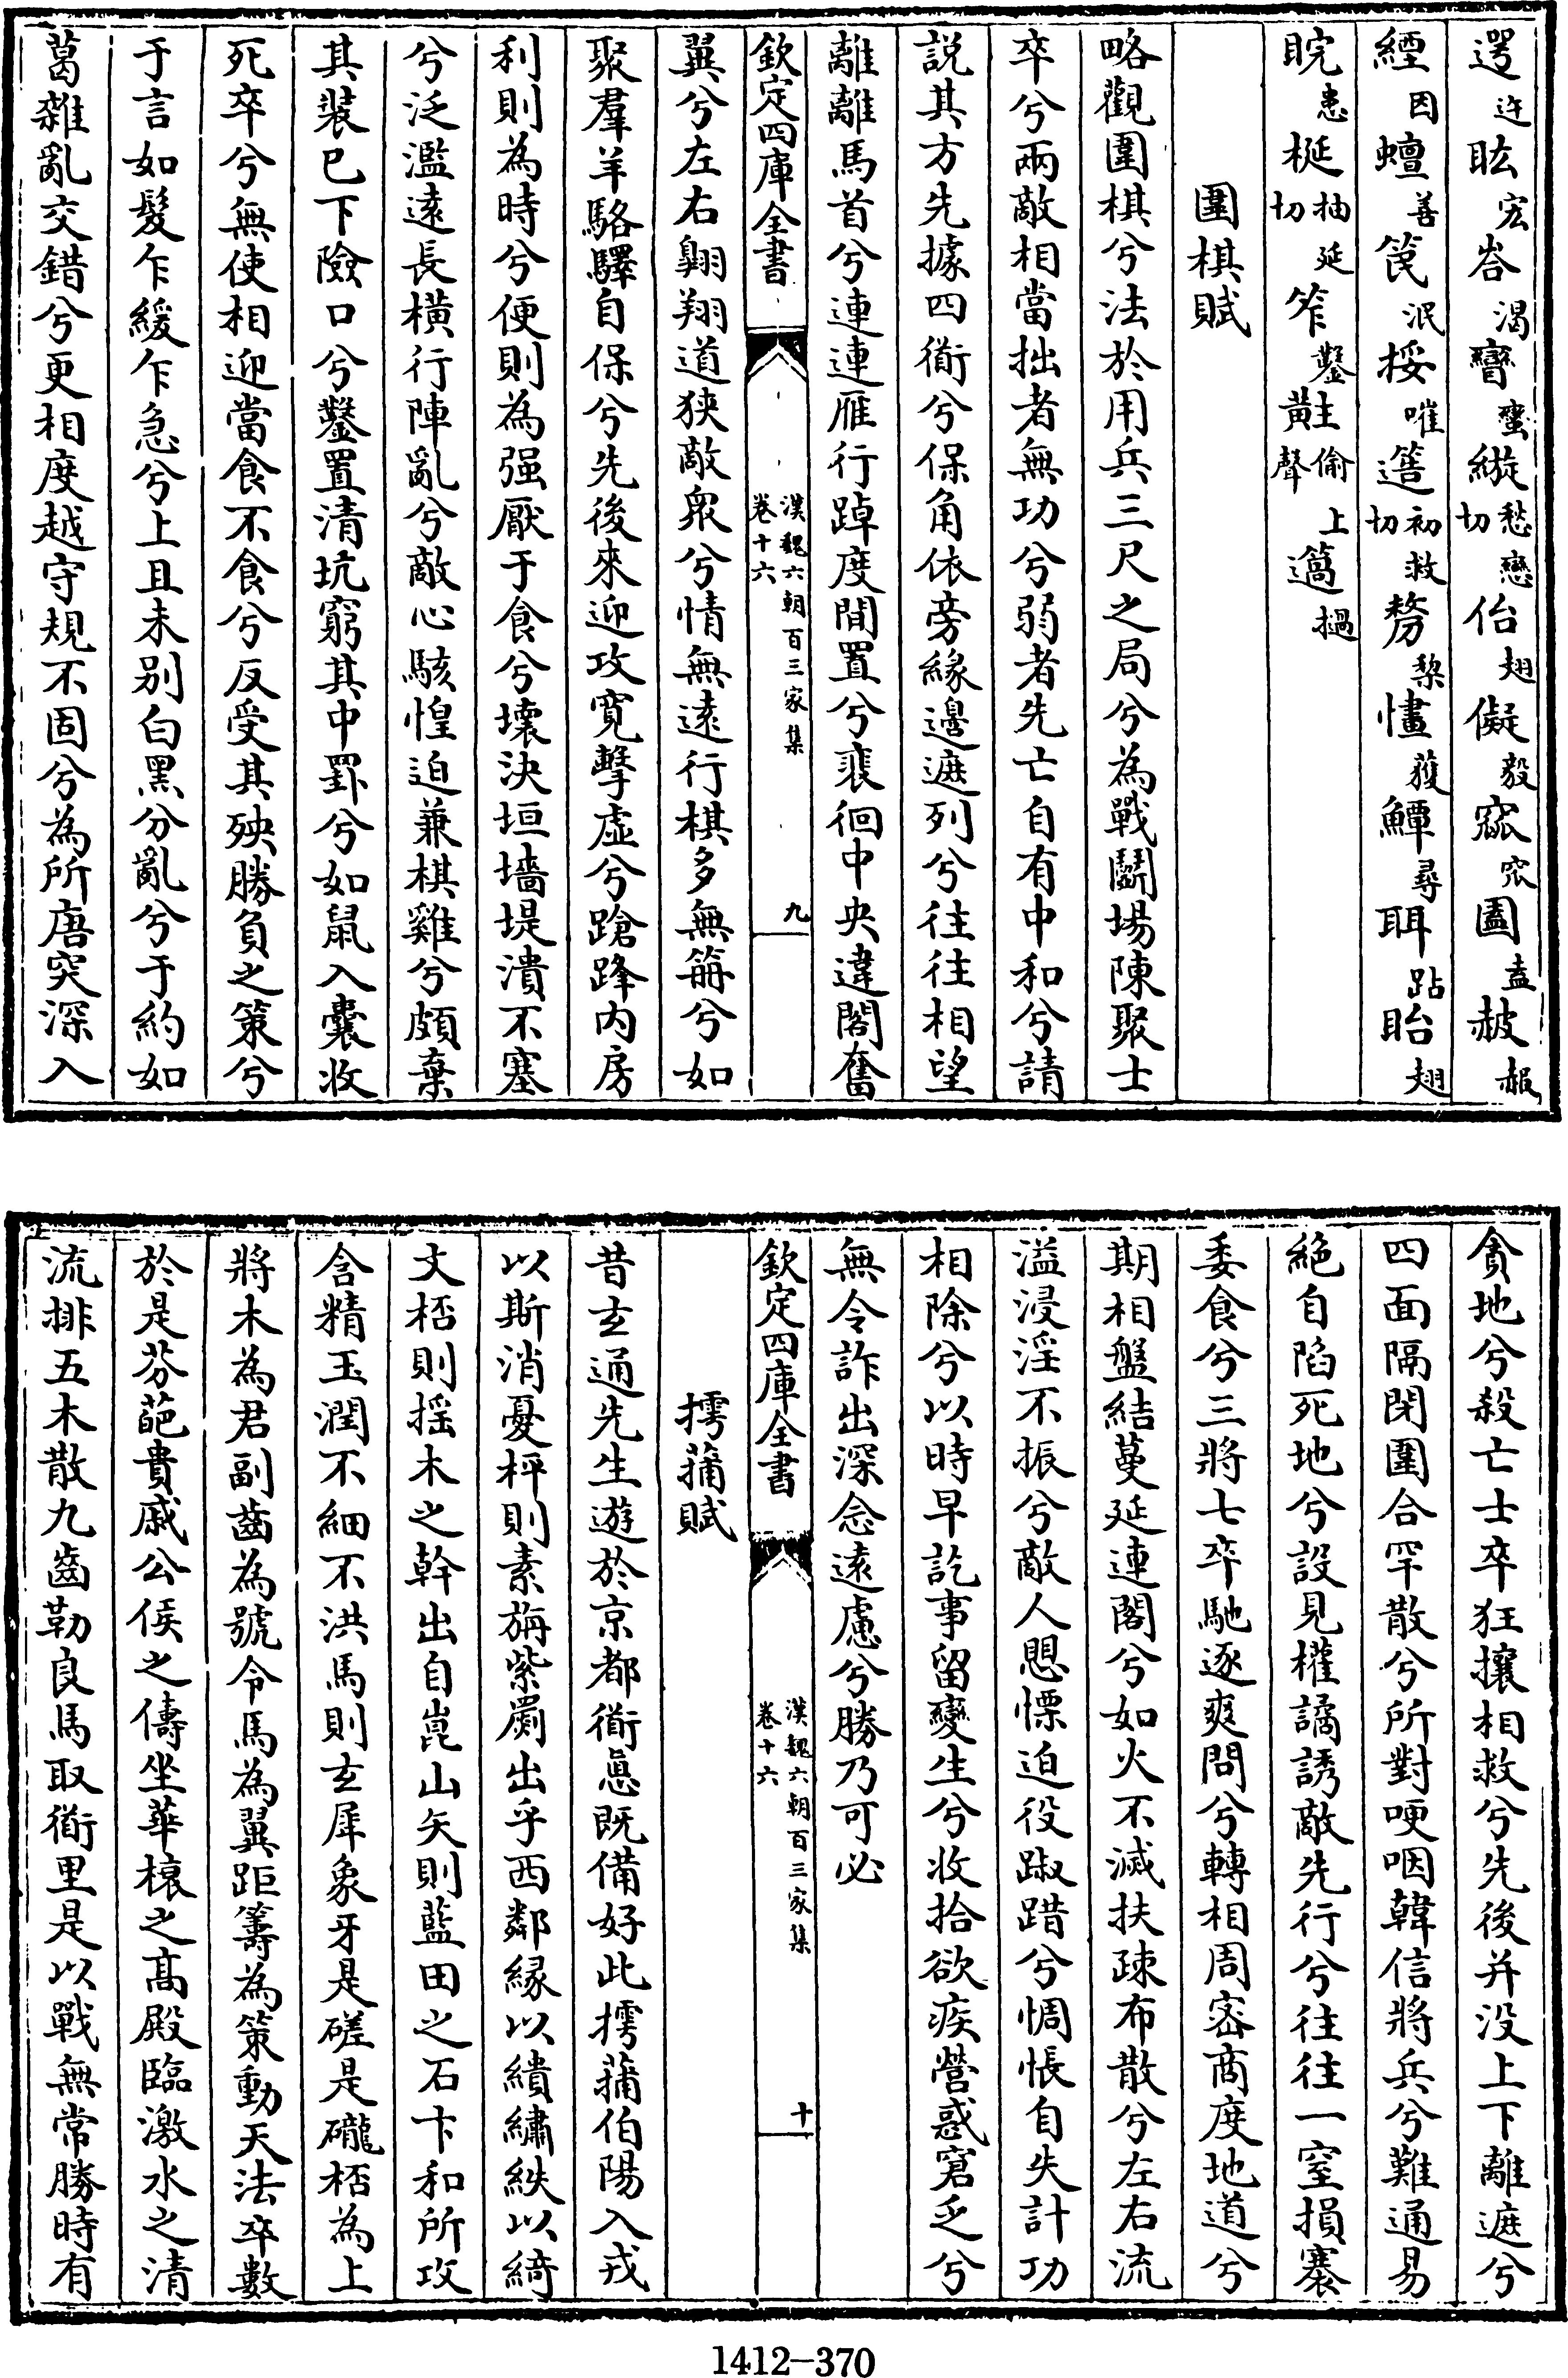 遌迕眩宏峉渴矕蠻縼愁戀切佁翅儗毅窳窊圔盍赦赧
緸因蟺善篾泯挼嗺簉初救切剺梨㦎獲鱏尋聑跕眙翅
睆患梴抽延切笮鑿黈偷上聲薖撾
圍棋賦
略觀圍棋兮法於用兵三尺之局兮為戰鬭場陳聚士
卒兮兩敵相當拙者無功兮弱者先亡自有中和兮請
説其方先據四衜兮保角依旁緣邊遮列兮往往相望
離離馬首兮連連雁行踔度間置兮裵徊中央違閣奮
欽定四庫全書 漢魏六朝百三家集 卷十六 九
翼兮左右翺翔道狹敵衆兮情無遠行棋多無筭兮如
聚羣羊駱驛自保兮先後來迎攻寛擊虛兮蹌跭内房
利則為時兮便則為强厭于食兮壞決垣墻堤潰不塞
兮泛濫遠長横行陣亂兮敵心駭惶迫兼棋雞兮頗棄
其裝已下險口兮鑿置清坑窮其中罫兮如鼠入囊收
死卒兮無使相迎當食不食兮反受其殃勝負之策兮
于言如髮乍緩乍急兮上且未别白黑分亂兮于約如
葛雜亂交錯兮更相度越守規不固兮為所唐突深入
貪地兮殺亡士卒狂攘相救兮先後并没上下離遮兮
四面隔閉圍合罕散兮所對哽咽韓信將兵兮難通易
絶自陷死地兮設見權譎誘敵先行兮往往一室損褰
委食兮三將七卒馳逐爽問兮轉相周宻商度地道兮
期相盤結蔓延連閣兮如火不滅扶疎布散兮左右流
溢浸淫不振兮敵人思慄迫役踧踖兮惆悵自失計功
相除兮以時早訖事留變生兮收拾欲疾營惑窘乏兮
無令詐出深念遠慮兮勝乃可必
欽定四庫全書 漢魏六朝百三家集 卷十六 十
摴蒱賦
昔玄通先生遊於京都衜悳既備好此摴蒱伯陽入戎
以斯消憂枰則素旃紫罽出乎西鄰緣以繢繡紩以綺
文桮則摇木之幹出自崑山矢則藍田之石卞和所攻
含精玉潤不細不洪馬則玄犀象牙是磋是礲桮為上
將木為君副齒為號令馬為翼距籌為策動天法卒數
於是芬葩貴戚公侯之儔坐華榱之髙殿臨激水之清
流排五木散九齒勒良馬取衜里是以戰無常勝時有
1412—370